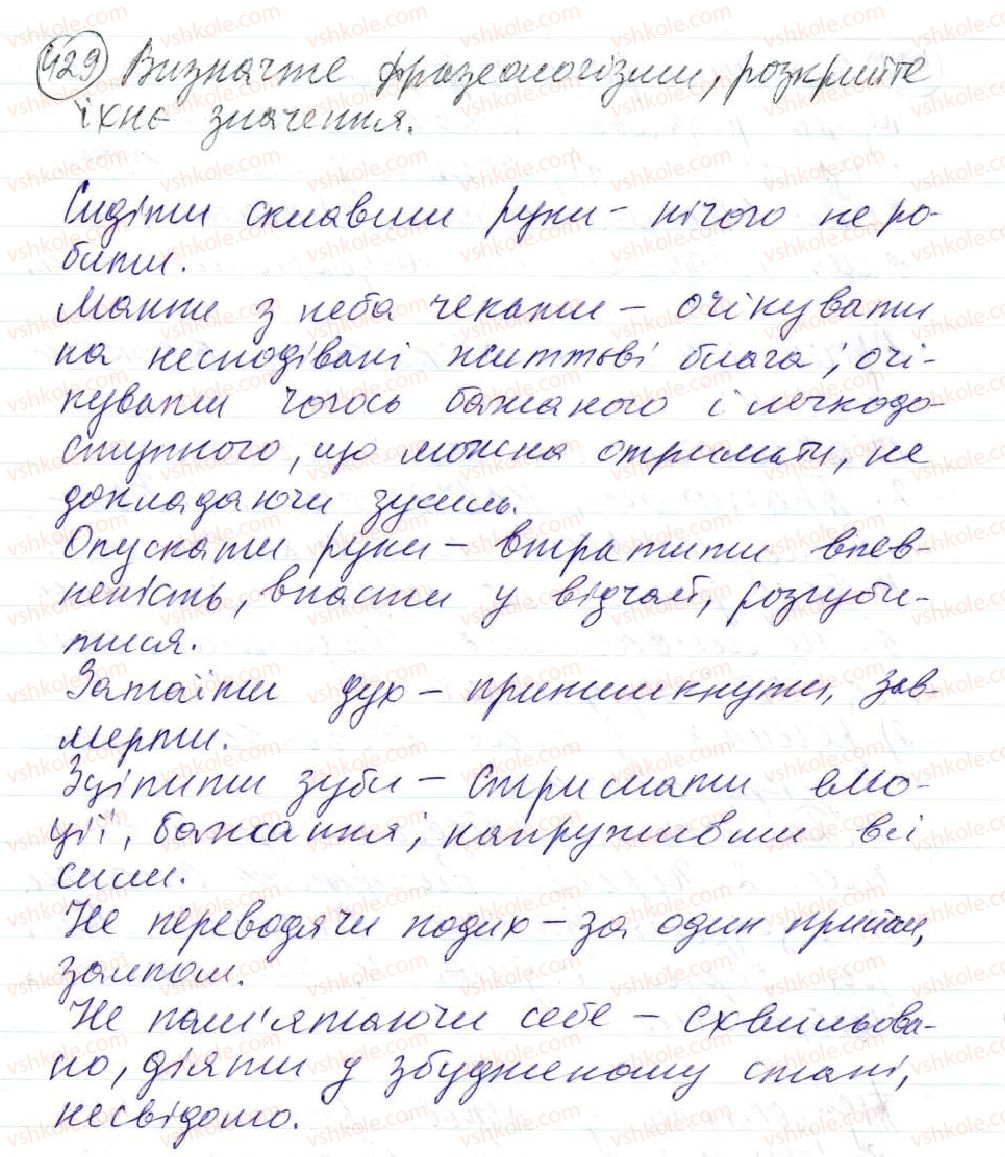 429 Визначте фразеологізми, розкрийте
їхнє значення.
Сидіти склавши руки – нічого не ро-
бити.
Манни з неба чекати – очікувати
на несподівані життєві блага; очі-
кувати чогось бажаного і легкодо-
ступного, що можна отримати, не
докладаючи зусиль.
Опускати руки – втратити впев-
неність, впасти у відчай, розгуби-
тися.
Затаїти дух – притимкнути, зав-
мерти.
Зціпити зуби – стримати емо-
ції, бажання; напруживши всі
сили.
Не переводячи подих – за один прийом,
залпом.
Не пам'ятаючи себе – схвильова-
но, діяти у збудженому стані,
несвідомо.